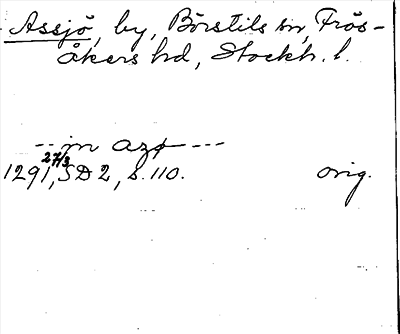 Assjö, by, Börstils sn, Frös-
åkers hd, Stockh. l.
--- in azø ---
27/3
1291, SD 2, s. 110. orig.